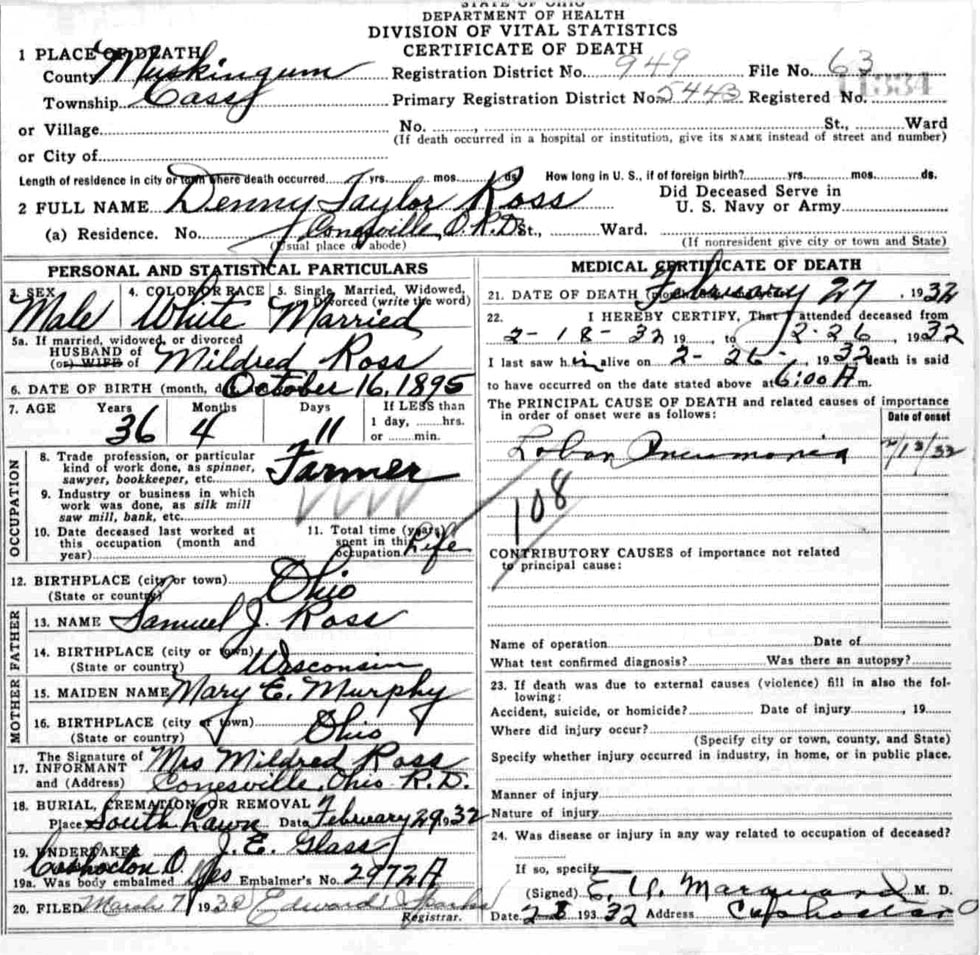 STATE OF OHIO
DEPARTMENT OF HEALTH
DIVISION OF VITAL STATISTICS
CERTIFICATE OF DEATH
1 PLACE OF DEATH
County Muskingum Registration District No. 949 File No. 63
Township Cass Primary Registration District No. 5443 Registered No. 11334
or Village No. , St., Ward
(If death occurred in a hospital or institution, give its NAME instead of street and number)
or City of
Length of residence in city or town where death occurred yrs. mos. ds. How long in U. S., if of foreign birth? yrs. mos. ds.
2 FULL NAME Denny Taylor Ross Did Deceased Serve in U. S. Navy or Army
(a) Residence. No. Conesville, O. R.D. St., Ward.
(Usual place of abode) (If nonresident give city or town and State)
PERSONAL AND STATISTICAL PARTICULARS
3. SEX 4. COLOR OR RACE 5. Single, Married, Widowed,
Divorced (write the word)
Male White Married
5a. If married, widowed, or divorced
HUSBAND of
(or) WIFE of Mildred Ross
6. DATE OF BIRTH (month, day, October 16, 1895
7. AGE Years Months Days If LESS than
1 day, hrs.
36 4 11 or min.
OCCUPATION
8. Trade, profession, or particular
kind of work done, as spinner,
sawyer, bookkeeper, etc. Farmer
9. Industry or business in which
work was done, as silk mill
saw mill, bank, etc.
10. Date deceased last worked at
this occupation (month and
year)
11. Total time (years)
spent in this
occupation Life
12. BIRTHPLACE (city or town)
(State or country) Ohio
FATHER
13. NAME Samuel J. Ross
14. BIRTHPLACE (city or town)
(State or country) Wisconsin
MOTHER
15. MAIDEN NAME Mary E. Murphy
16. BIRTHPLACE (city or town)
(State or country) Ohio
17. The Signature of
INFORMANT Mrs Mildred Ross
and (Address) Conesville, Ohio R.D.
18. BURIAL, CREMATION OR REMOVAL
Place South Lawn Date February 29, 1932
19. UNDERTAKER J. E. Glass
Coshocton O.
19a. Was body embalmed Yes Embalmer's No. 2972A
20. FILED March 7, 1932 Edward
Registrar.
MEDICAL CERTIFICATE OF DEATH
21. DATE OF DEATH February 27, 1932
22. I HEREBY CERTIFY, That I attended deceased from
2-18-32 19 , to 2-26, 1932
I last saw him alive on 2-26-, 1932 death is said
to have occurred on the date stated above at 6:00 A m.
The PRINCIPAL CAUSE OF DEATH and related causes of importance
in order of onset were as follows:
Date of onset
Lobar Pneumonia 2/13/32
108
CONTRIBUTORY CAUSES of importance not related
to principal cause:
Name of operation Date of
What test confirmed diagnosis? Was there an autopsy?
23. If death was due to external causes (violence) fill in also the fol-
lowing:
Accident, suicide, or homicide? Date of injury , 19
Where did injury occur?
(Specify city or town, county, and State)
Specify whether injury occurred in industry, in home, or in public place.
Manner of injury
Nature of injury
24. Was disease or injury in any way related to occupation of deceased?
If so, specify
(Signed) E. W. Marquand M. D.
Date 193 32 Address